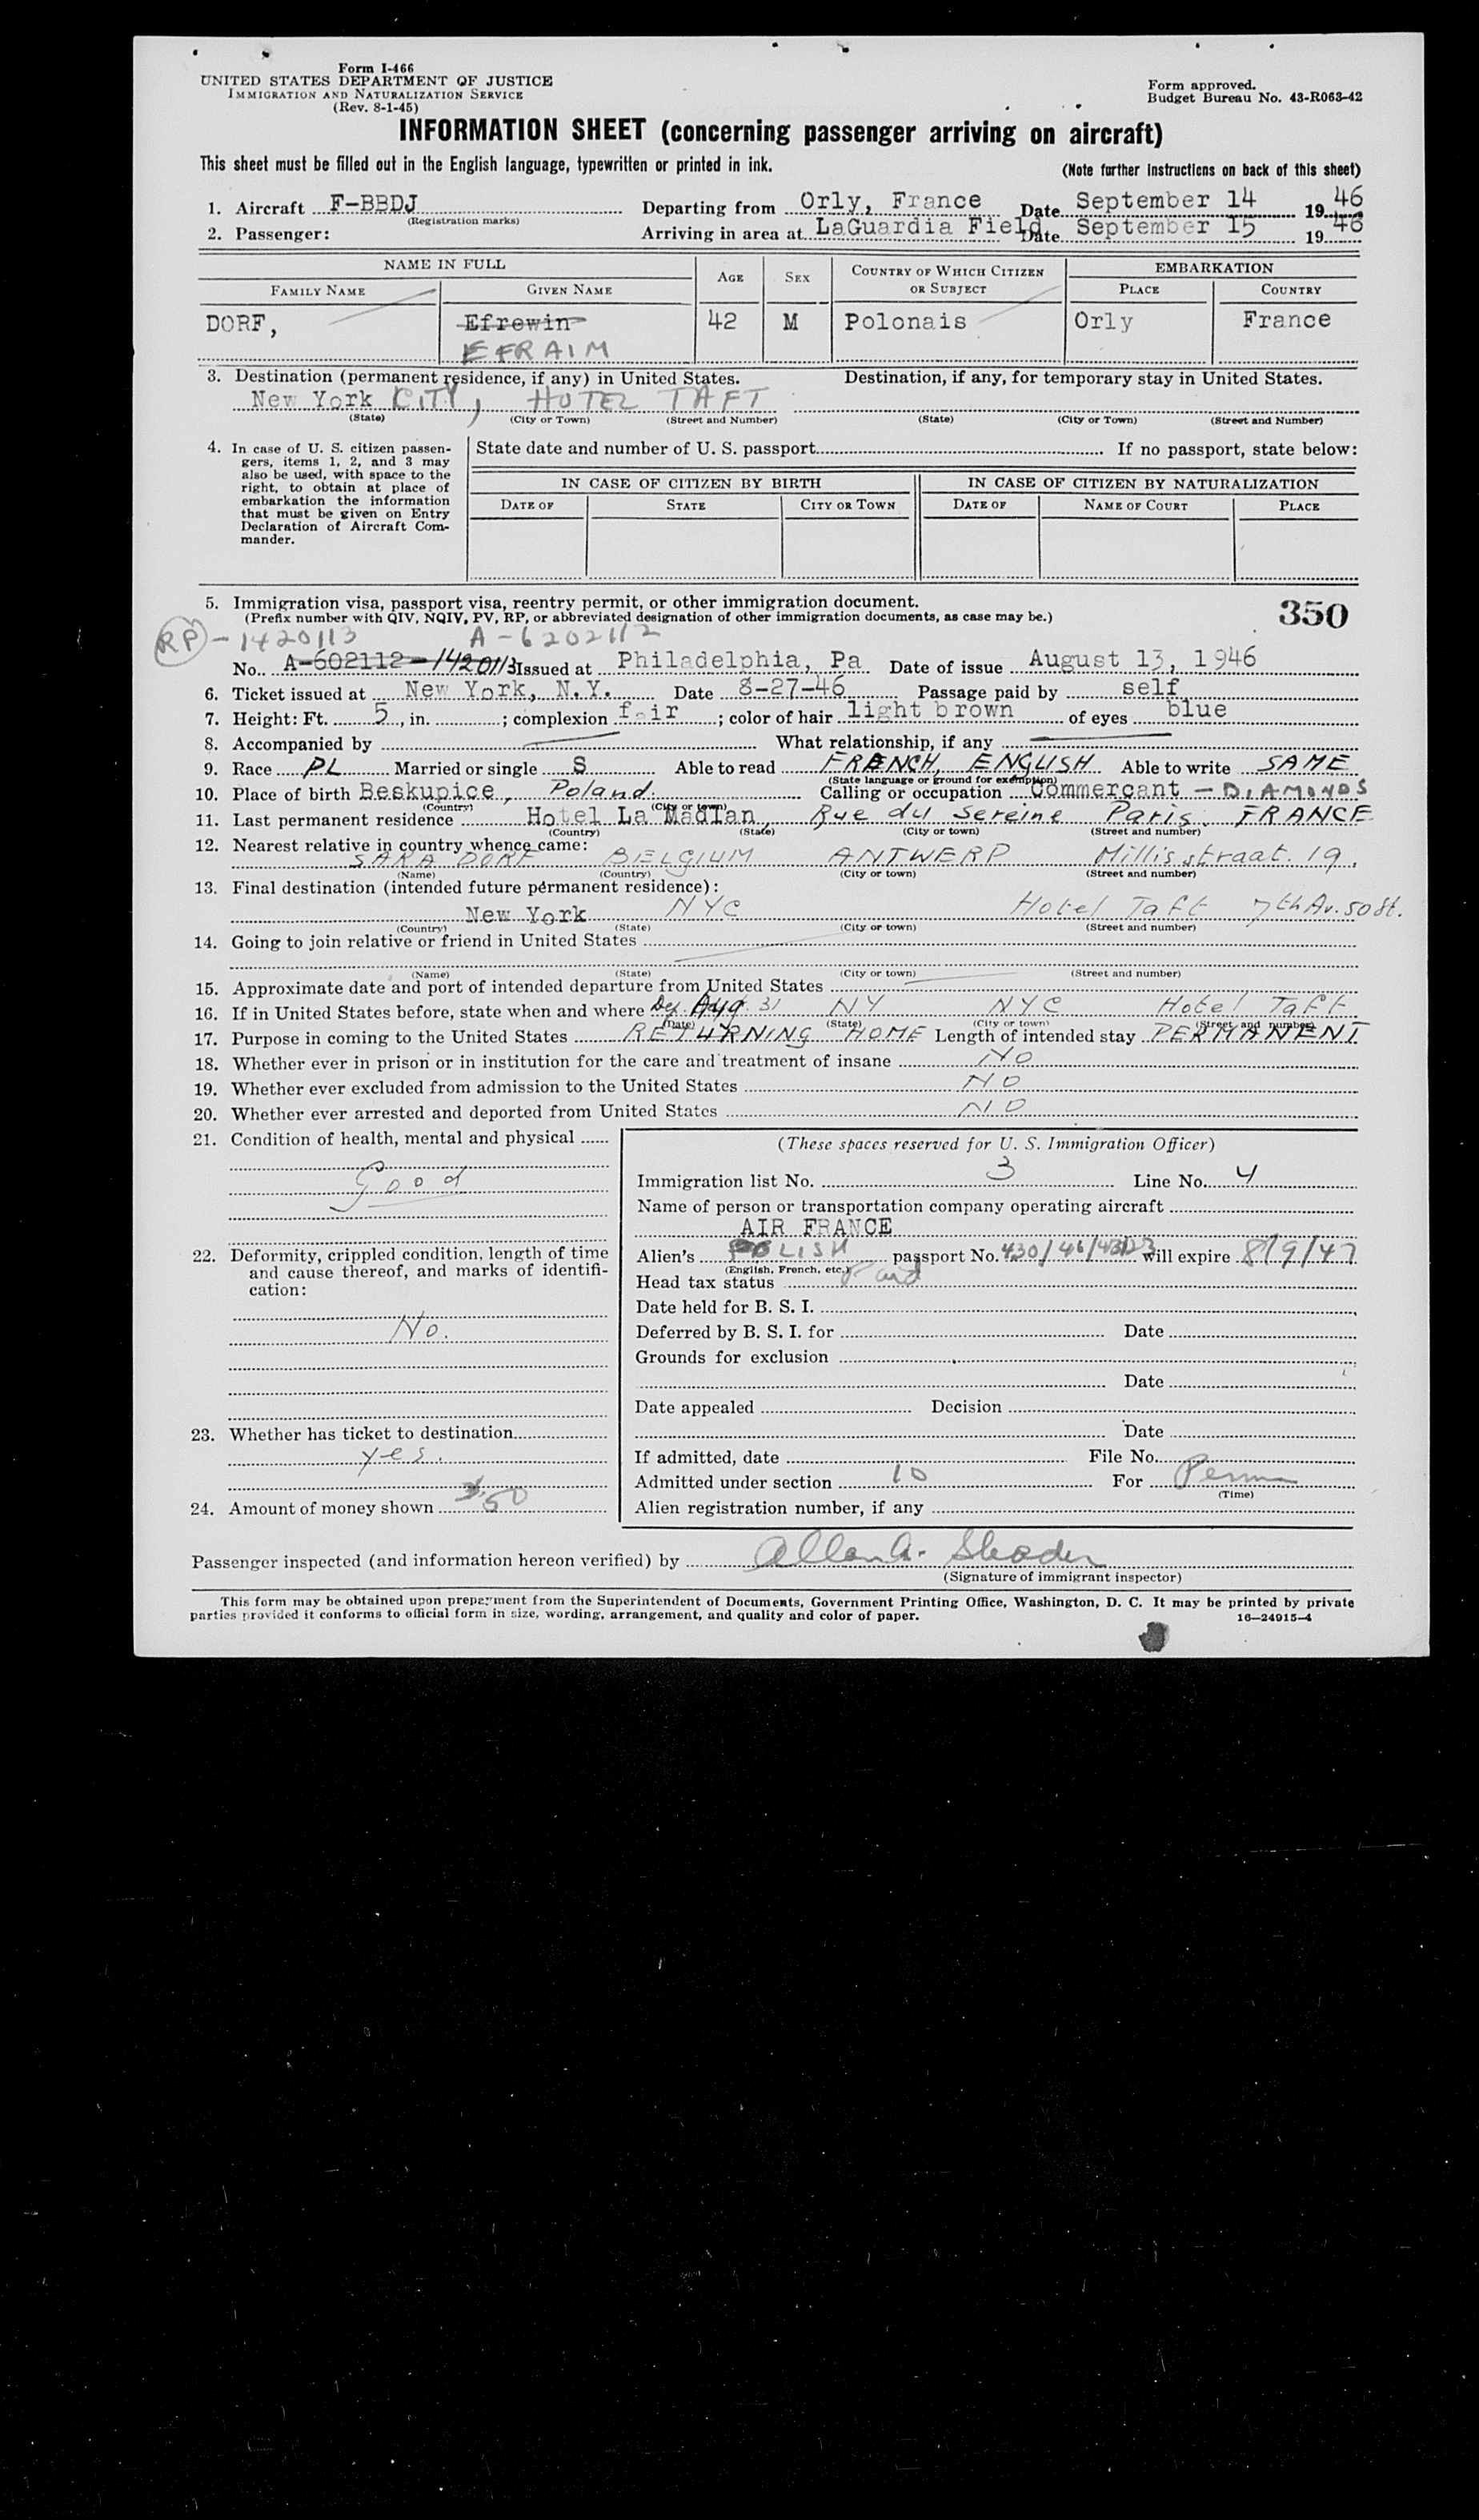 Form I-466
UNITED STATES DEPARTMENT OF JUSTICE
IMMIGRATION AND NATURALIZATION SERVICE
(Rev. 8-1-45)
Form approved.
Budget Bureau No. 43-R063-42
INFORMATION SHEET (concerning passenger arriving on aircraft)
This sheet must be filled out in the English language, typewritten or printed in ink.
(Note further instructions on back of this sheet)
1. Aircraft F-BBDJ Departing from Orly, France Date September 14 1946
(Registration marks)
2. Passenger: Arriving in area at LaGuardia Field Date September 15 1946
NAME IN FULL AGE SEX COUNTRY OF WHICH CITIZEN OR SUBJECT EMBARKATION
FAMILY NAME GIVEN NAME PLACE COUNTRY
DORF, Efrewin 42 M Polonais Orly France
EFRAIM
3. Destination (permanent residence, if any) in United States. Destination, if any, for temporary stay in United States.
New York CITY, HOTEL TAFT
(State) (City or Town) (Street and Number) (State) (City or Town) (Street and Number)
4. In case of U. S. citizen passengers, items 1, 2, and 3 may also be used, with space to the right, to obtain at place of embarkation the information that must be given on Entry Declaration of Aircraft Commander.
State date and number of U. S. passport If no passport, state below:
IN CASE OF CITIZEN BY BIRTH IN CASE OF CITIZEN BY NATURALIZATION
DATE OF STATE CITY OR TOWN DATE OF NAME OF COURT PLACE
5. Immigration visa, passport visa, reentry permit, or other immigration document.
350
(Prefix number with QIV, NQIV, PV, RP, or abbreviated designation of other immigration documents, as case may be.)
RP - 1420113 A-6202112
No. A-602112-1420113 Issued at Philadelphia, Pa Date of issue August 13, 1946
6. Ticket issued at New York, N.Y. Date 8-27-46 Passage paid by self
7. Height: Ft. 5, in. ; complexion fair ; color of hair light brown of eyes blue
8. Accompanied by What relationship, if any
9. Race PL Married or single S Able to read FRENCH, ENGLISH Able to write SAME
(State language or ground for exemption)
10. Place of birth Beskupice, Poland. Calling or occupation Commercant - DIAMONDS
(Country) (City or town)
11. Last permanent residence Hotel La Madlan, Rue du Sereine Paris. FRANCE
(Country) (State) (City or town) (Street and number)
12. Nearest relative in country whence came:
SARA DORF BELGIUM ANTWERP Millisstraat. 19.
(Name) (Country) (City or town) (Street and number)
13. Final destination (intended future permanent residence):
New York NYC Hotel Taft 7th Av. 50 St.
(Country) (State) (City or town) (Street and number)
14. Going to join relative or friend in United States
(Name) (State) (City or town) (Street and number)
15. Approximate date and port of intended departure from United States
16. If in United States before, state when and where Dep. Aug. 31 NY NYC Hotel Taft
(Date) (State) (City or town) (Street and number)
17. Purpose in coming to the United States RETURNING HOME Length of intended stay PERMANENT
18. Whether ever in prison or in institution for the care and treatment of insane NO
19. Whether ever excluded from admission to the United States NO
20. Whether ever arrested and deported from United States NO
21. Condition of health, mental and physical
Good
22. Deformity, crippled condition, length of time and cause thereof, and marks of identification:
No.
23. Whether has ticket to destination
yes.
24. Amount of money shown $50
(These spaces reserved for U. S. Immigration Officer)
Immigration list No. 3 Line No. 4
Name of person or transportation company operating aircraft
AIR FRANCE
Alien's POLISH passport No. 430/46/43123 will expire 8/9/47
(English, French, etc.)
Head tax status Paid
Date held for B. S. I.
Deferred by B. S. I. for Date
Grounds for exclusion
Date
Date appealed Decision
Date
If admitted, date File No.
Admitted under section 10 For Perm
(Time)
Alien registration number, if any
Passenger inspected (and information hereon verified) by Allan A.
(Signature of immigrant inspector)
This form may be obtained upon prepayment from the Superintendent of Documents, Government Printing Office, Washington, D. C. It may be printed by private
parties provided it conforms to official form in size, wording, arrangement, and quality and color of paper. 16—24915-4